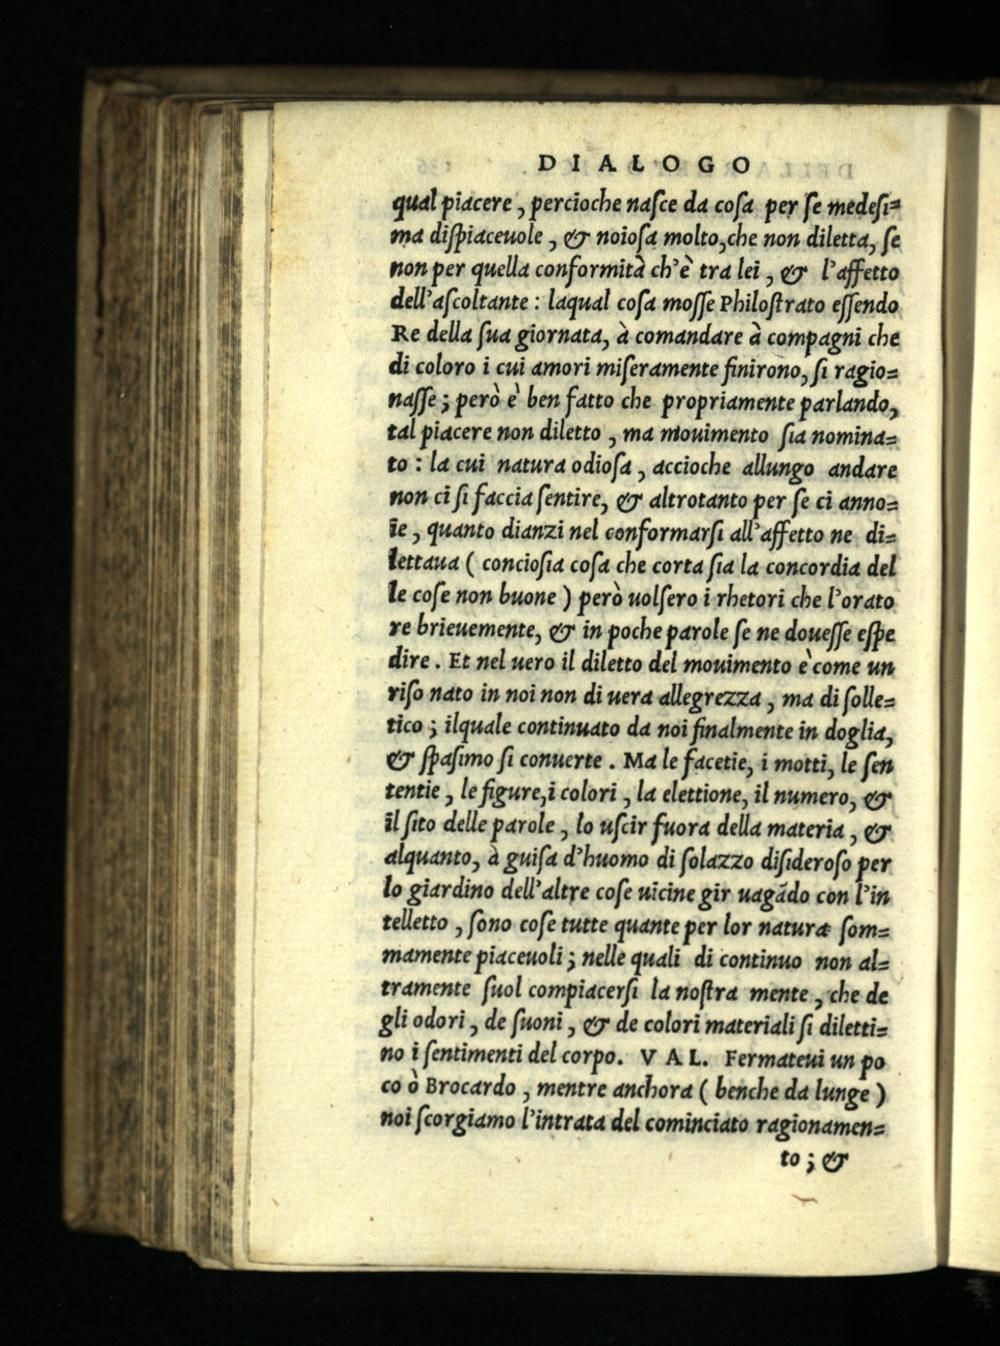 DIALOGO
qual piacere, percioche nasce da cosa per se medesi=
ma dispiaceuole, & noiosa molto, che non diletta, se
non per quella conformità ch'è tra lei, & l'affetto
dell'ascoltante: laqual cosa mosse Philostrato essendo
Re della sua giornata, à comandare à compagni che
di coloro i cui amori miseramente finirono, si ragio=
nasse; però è ben fatto che propriamente parlando,
tal piacere non diletto, ma mouimento sia nomina=
to: la cui natura odiosa, accioche allungo andare
non ci si faccia sentire, & altrotanto per se ci anno=
ie, quanto dianzi nel conformarsi all'affetto ne di=
lettaua (conciosia cosa che corta sia la concordia del
le cose non buone) però uolsero i rhetori che l'orato
re brieuemente, & in poche parole se ne douesse espe
dire. Et nel uero il diletto del mouimento è come un
riso nato in noi non di uera allegrezza, ma di solle=
tico; ilquale continuato da noi finalmente in doglia,
& spasimo si conuerte. Ma le facetie, i motti, le sen
tentie, le figure, i colori, la elettione, il numero, &
il sito delle parole, lo uscir fuora della materia, &
alquanto, à guisa d'huomo di solazzo disideroso per
lo giardino dell'altre cose uicine gir uagãdo con l'in
telletto, sono cose tutte quante per lor natura som=
mamente piaceuoli; nelle quali di continuo non al=
tramente suol compiacersi la nostra mente, che de
gli odori, de suoni, & de colori materiali si diletti=
no i sentimenti del corpo. VAL. Fermateui un po
co ò Brocardo, mentre anchora (benche da lunge)
noi scorgiamo l'intrata del cominciato ragionamen=
to; &